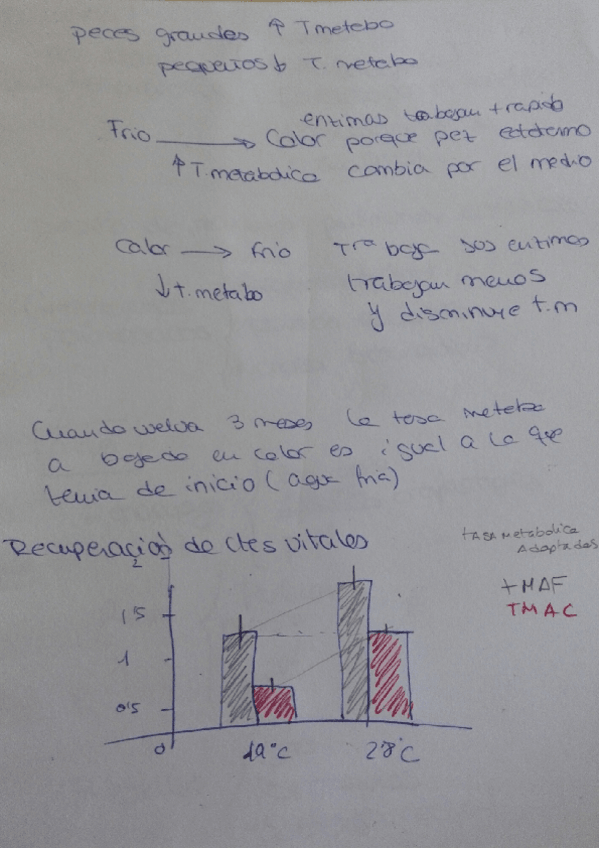 peces grandes ↑ T metabo
pequeños ↓ T. metabo
enzimas trabajan + rapido
Frio → Calor porque pez ectotermo
↑ T. metabolica cambia por el medio
Calor → Frio Tra baja sus enzimas
↓ t. metabo trabajan menos
y disminuye t.m
Cuando vuelva 3 meses la tasa metabo
a bajado en calor es igual a la que
tenia de inicio (agua fria)
Recuperació de ctes vitales
tASA Metabolica
Adaptadas
2
1'5
1
0'5
0
19°C
28°C
TMAF
TMAC